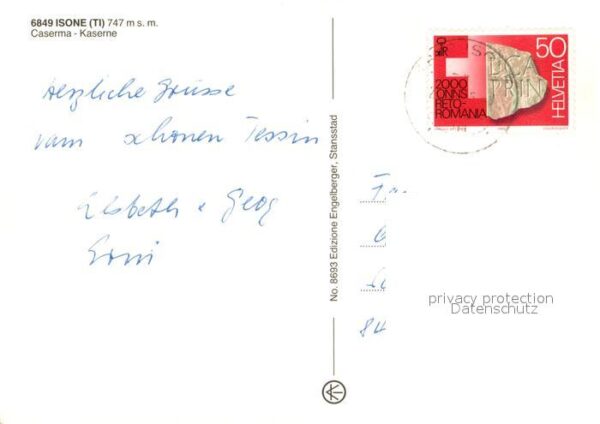 6849 ISONE (TI) 747 m s. m.
Caserma - Kaserne
Herzliche Grüsse
vom schönen Tessin
Elsbeth + Georg
Erni
No. 8693 Edizione Engelberger, Stansstad
50
HELVETIA
2000
ONNS
RETO-
ROMANIA
privacy protection
Datenschutz
84